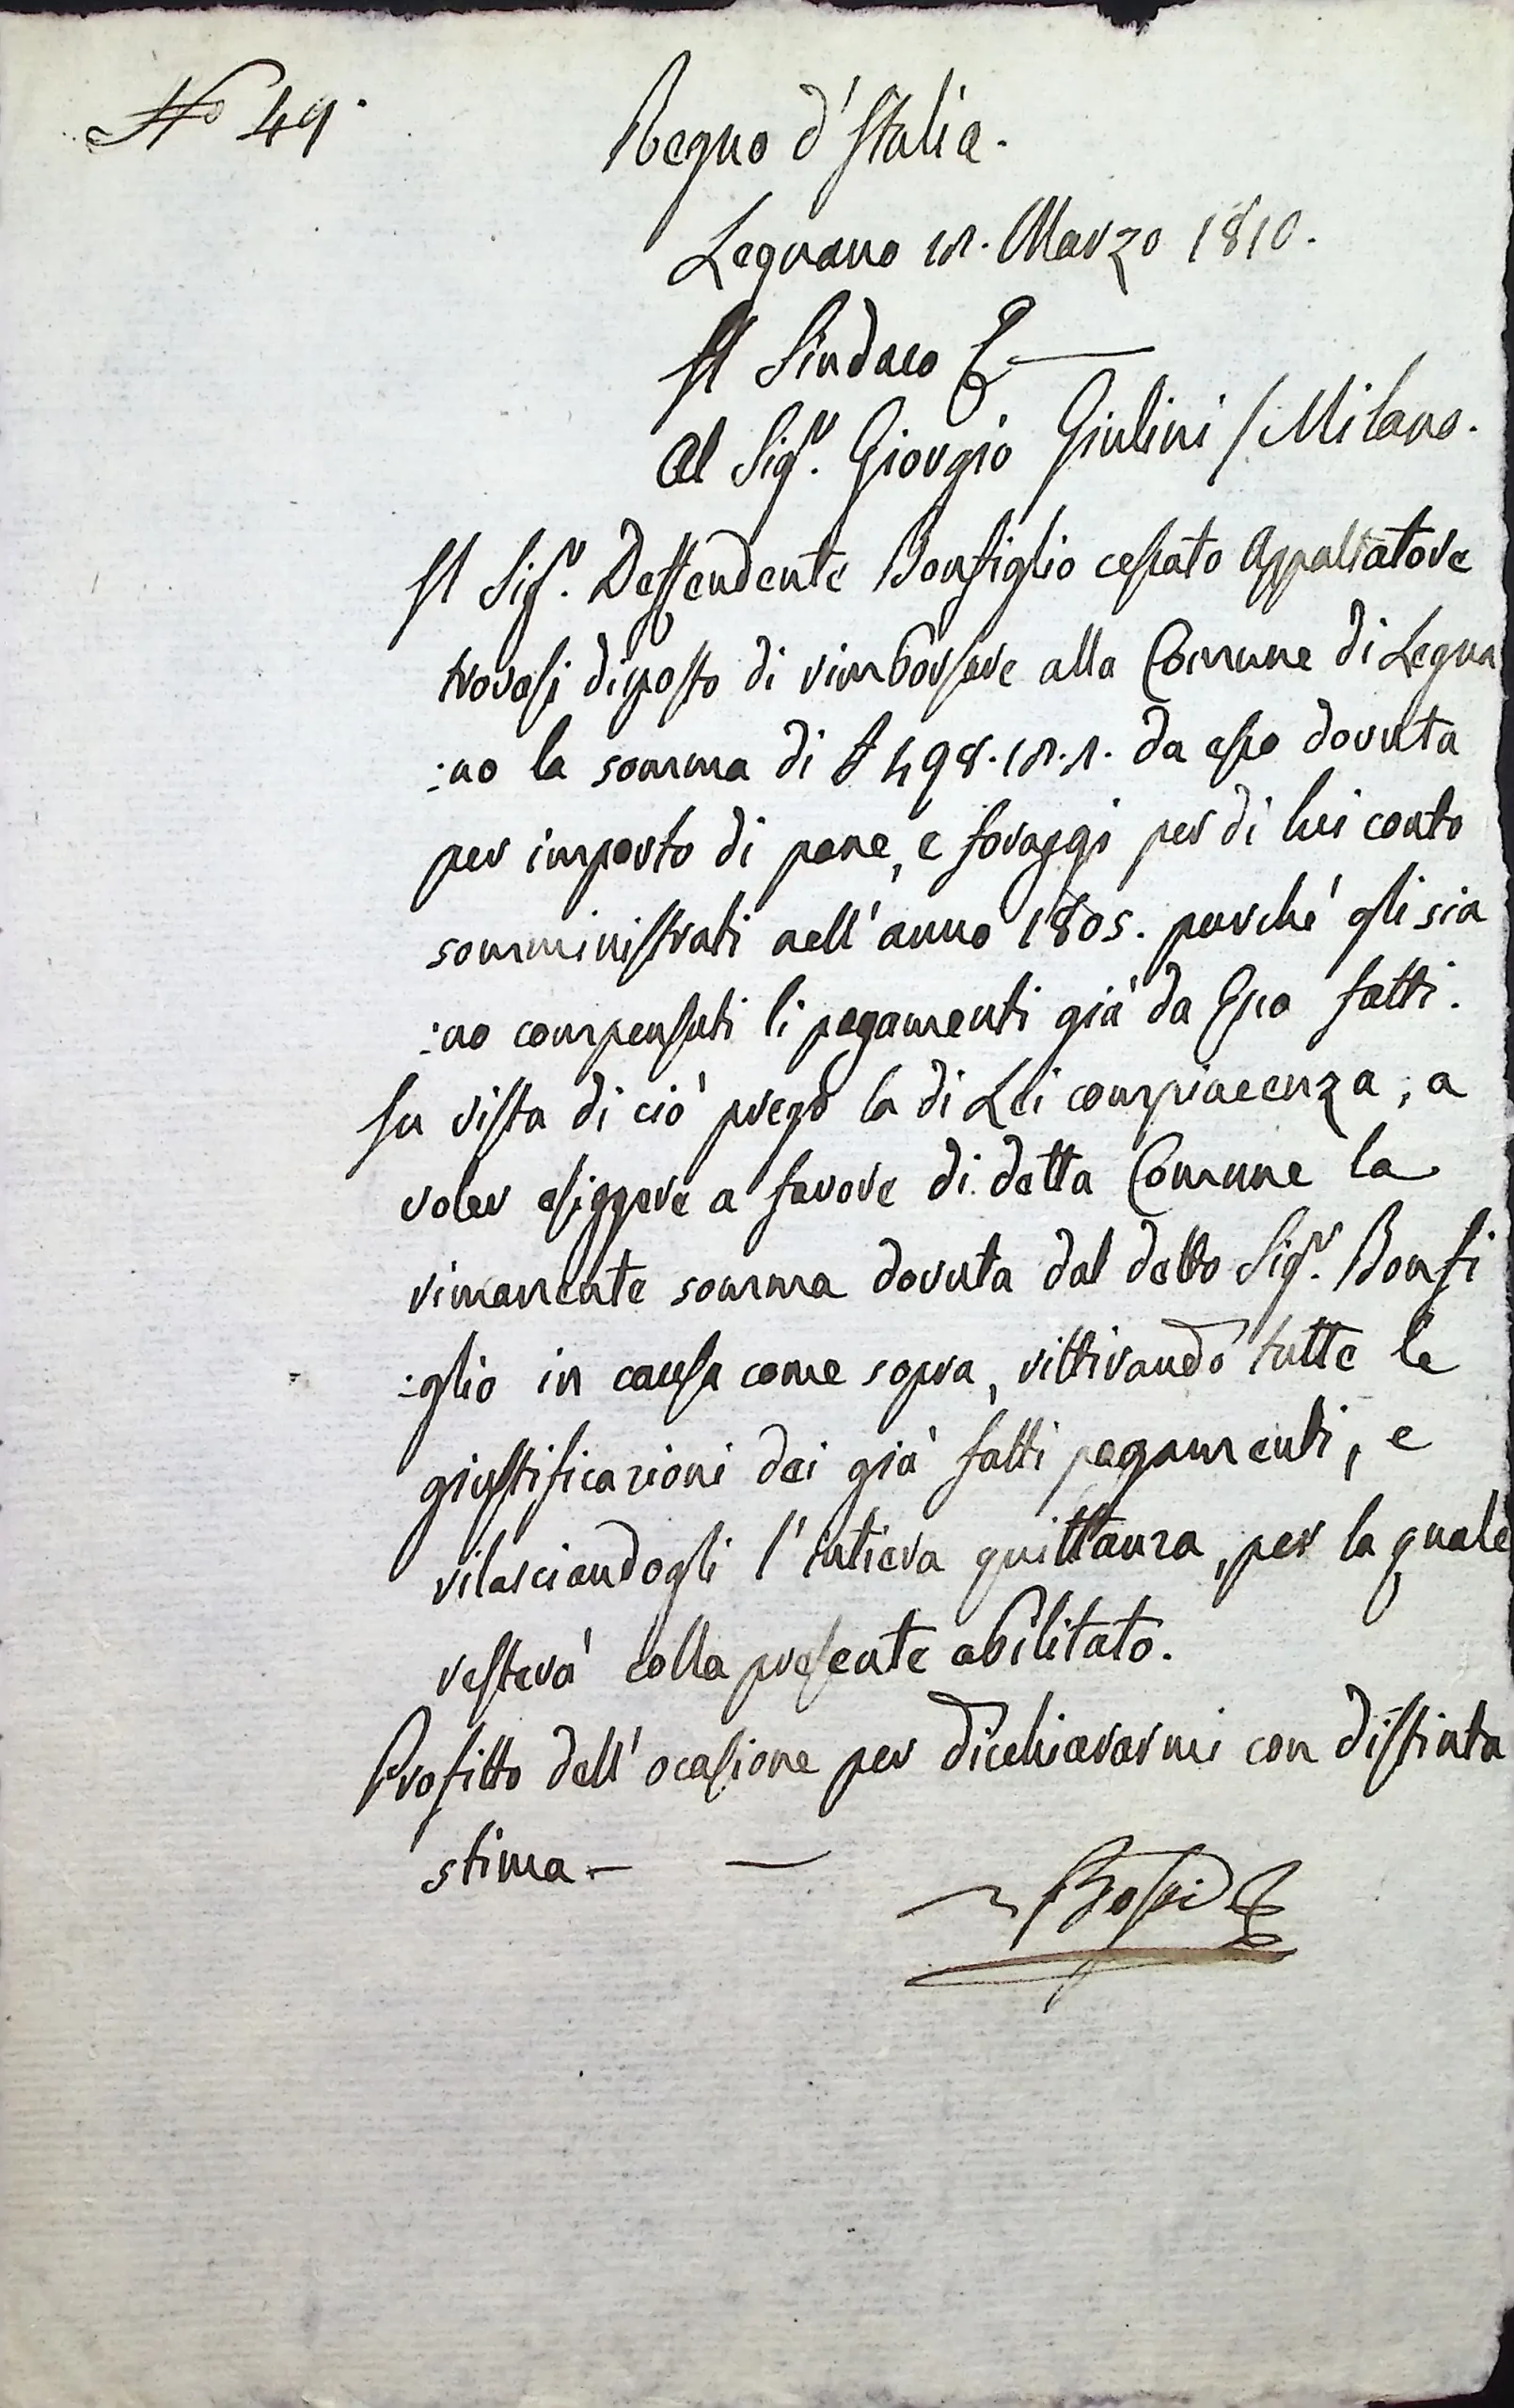 No 49.
Regno d'Italia.
Legnano 12. Marzo 1810.
Il Sindaco
Al Sigr. Giorgio Giulini / Milano.
Il Sigr. Deffendente Bonfiglio cessato Appaltatore
trovasi disposto di rimborsare alla Comune di Legna
:no la somma di £ 498.12.1. da esso dovuta
per importo di pane, e foraggi per di lui conto
somministrati nell'anno 1805. purchè gli sia
:no compensati li pagamenti già da Esso fatti.
In vista di ciò prego la di Lei compiacenza, a
voler esiggere a favore di detta Comune la
rimanente somma dovuta dal detto Sigr. Bonfi
:glio in causa come sopra, rittirando tutte le
giustificazioni dei già fatti pagamenti, e
rilasciandogli l'intiera quittanza, per la quale
resterà colla presente abilitato.
Profitto dell'ocasione per dicchiararmi con distinta
stima —
Bossi